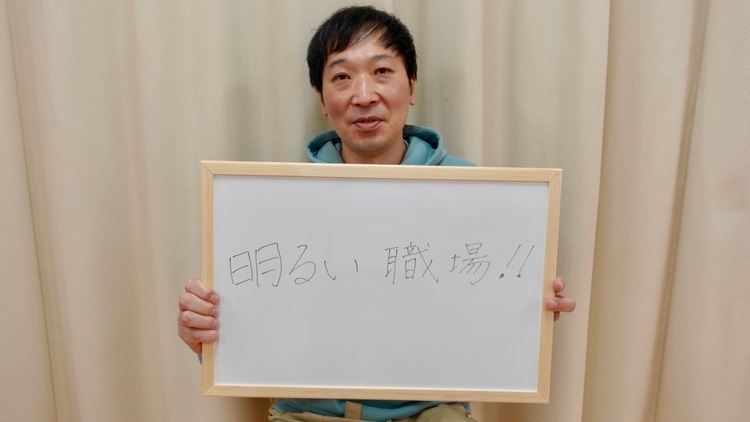 明るい職場!!